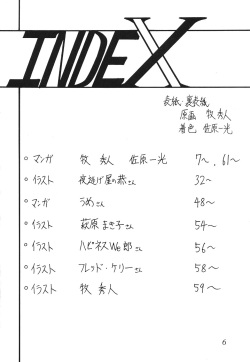 INDEX
表紙・裏表紙
原画 牧秀人
着色 佐原一光
○マンガ 牧 秀人 佐原一光 7〜，61〜
○イラスト 夜逃げ屋の恭さん 32〜
○マンガ うめさん 48〜
○イラスト 萩原まき子さん 54〜
○イラスト ハピネスWe郎さん 56〜
○イラスト フレッド・ケリーさん 58〜
○イラスト 牧 秀人 59〜
6